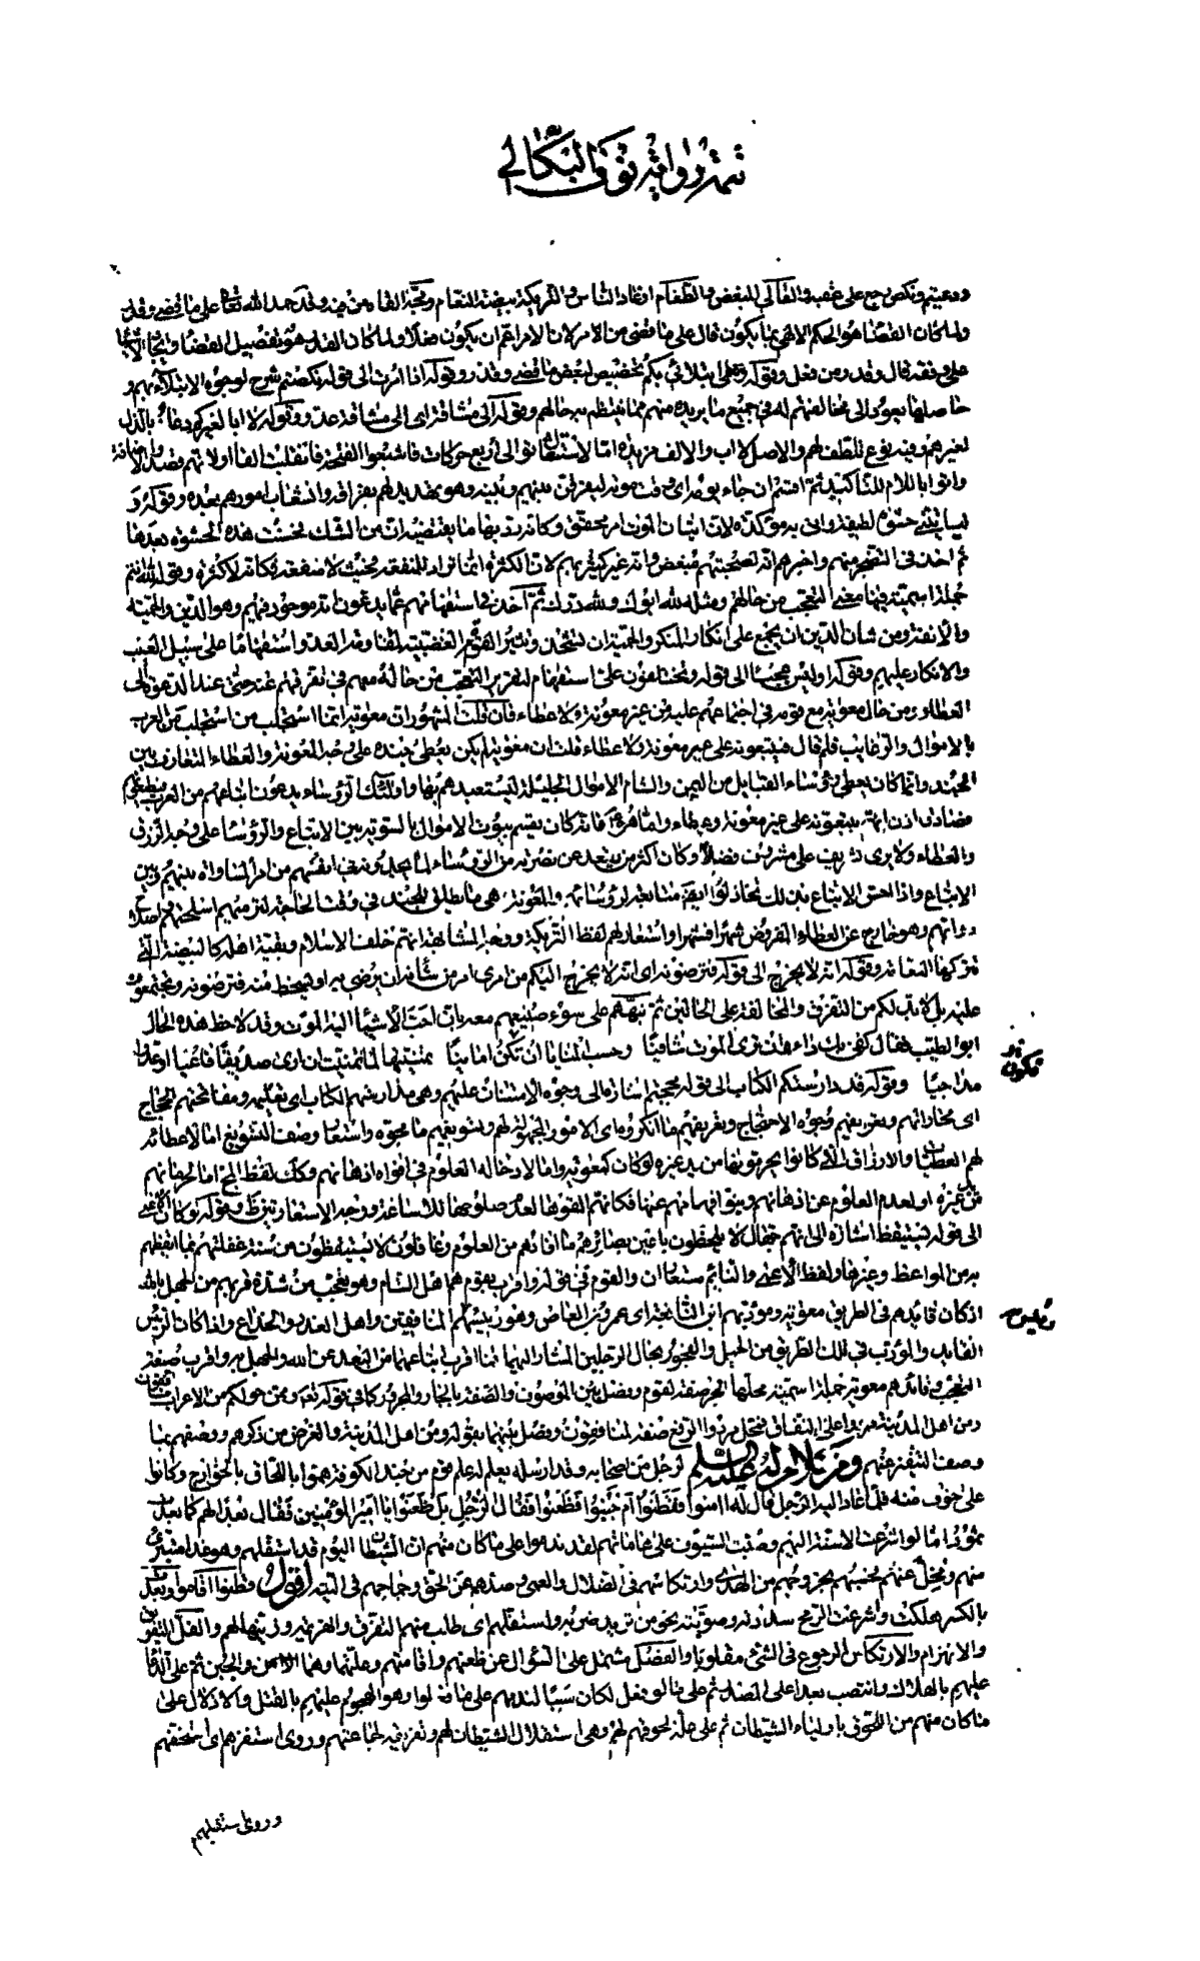 تتمة رواية نوف البكالي
ونكص رجع على عقبه والقالي المبغض والطغام اوغاد الناس والتريكة بيضة النعام وقد حمد الله تعالى على ما قضى وقدر
ولما كان القضاء هو الحكم الالهي بما يكون قال على ما قضى من الامر لان الامر اعم ان يكون فعلا ولما كان القدر هو تفصيل القضاء
على وفقه قال وقدر من فعل وقوله وعلى ابتلائي بكم تخصيص لبعض ما قضى وقدر وقوله اذا امرت الى قوله نكصتم شرح لوجوه الابتلاء بهم و
حاصلها يعود الى مخالفتهم له في جميع ما يريده منهم مما ينتظم به حالهم وقوله الى مشاقة اى الى مشاقة عدو وقوله لا ابا لغيركم دعاء بالذل
لغيرهم وفيه نوع تلطف لهم والاصل لا اب والالف مزيدة اما لاستثقال توالى اربع حركات فاشبعوا الفتحة فانقلبت الفا او لانهم قصدوا الاضافة
واتوا باللام للتاكيد ثم اقسم ان جاء يومه اى وقت موته ليفرقن بينهم وبينه وهو تهديد لهم بفراقه وانشعاب امورهم بعده وقوله و
لياتيني حشوة لطيفة واتى به مؤكدة لان اتيان الموت امر محقق وكانه رد بها ما يقتضيه ان من الشك فحسنت هذه الحشوة بعدها
ثم اخذ في التضجر منهم واخبرهم انه لصحبتهم مبغض وانه غير كثير بهم لان الكثرة انما تراد للمنفعة فحيث لا منفعة فكانه لا كثرة وقوله لله انتم
جملة اسمية فيها معنى التعجب من حالهم ومثله لله ابوك ولله درك ثم اخذ في استفهامهم عما يدعون انه موجود فيهم وهو الدين والحمية
والانفة ومن شان الدين ان يجمع على انكار المنكر والحمية ان تشحذ وتثير القوة الغضبية لقاومة العدو استفهاما على سبيل العتب
والانكار عليهم وقوله اوليس عجبا الى قوله وتختلفون على استفهام لتقرير التعجب من حاله معهم في تفرقهم عنه حتى عند الدعوة الى
العطاء ومن حال معوية مع قومه في اجتماعهم عليه من غير معونة ولا عطاء فان قلت المشهور ان معوية انما استجلب من استجلب من العرب
بالاموال والرغايب فلم قال فيتبعونه على غير معونة ولا عطاء قلت ان معوية لم يكن يعطى جنده على وجه المعونة والعطاء المتعارف بين
الجند وانما كان يعطى رؤساء القبايل من اليمن والشام الاموال الجليلة ليستعبدهم بها واولئك الرؤساء يدعون اتباعهم من العرب فيطيعونهم
فصادق اذن انهم يتبعونه على غير معونة وعطاء واما هو ع فانه كان يقسم بيوت الاموال بالسوية بين الاتباع والرؤسا على وجه الرزق
والعطاء ولا يرى لشريف على مشروف فضلا وكان اكثر من يقعد عن نصرته من الرؤساء لما يجدونه في انفسهم من امر المساواة بينهم وبين
الاتباع واذا احس الاتباع بذلك تخاذلوا ايضا متابعة لرؤسائهم والمعونة هى ما يطلق للجند في وقت الحاجة لترميم اسلحتهم واصلاح
دوابهم وهو خارج عن العطاء المفروض شهرا فشهرا واستعار لهم لفظ التريكة ووجه المشابهة انهم خلف الاسلام وبقية اهله كالبيضة التى
تتركها النعامة وقوله انه لا يخرج الى قوله فترضونه اى انه لا يخرج اليكم من امرى امر من شانه ان يرضى به او يسخط منه فترضونه وتجتمعون
عليه بل لابد لكم من التفرق والمخالفة على الحالين ثم نبههم على سوء صنيعهم معه بان احب الاشياء اليه الموت وقد لاحظ هذه الحال
ابو الطيب فقال كفى بك داء ان ترى الموت شافيا وحسب المنايا ان يكن امانيا تمنيتها لما تمنيت ان ترى صديقا فاعيا او عدوا
مداجيا وقوله قد دارستكم الكتاب الى قوله مججتم اشارة الى وجوه الامتنان عليهم وهى مدارستهم الكتاب اى تعليمه ومفاتحتهم الحجاج
اى مجاراتهم وتعريفهم وجوه الاحتجاج وتعريفهم ما انكروه اى الامور المجهولة لهم وتسويغهم ما مجوه واستعار وصف التسويغ اما لاعطائه
لهم العطيات والارزاق التى كانوا يحرمونها من يد غيره لو كان كمعوية واما لادخاله العلوم في افواه اذهانهم وكذلك لفظ المج اما لحرمانهم
من غيره او لعدم العلوم عن اذهانهم ونبو افهامهم عنها فكانهم القوها لعدم صلوحها للاساغة ووجه الاستعارتين ظ وقوله لو كان الاعمى
الى قوله يستيقظ اشارة الى انهم جهال لا يلحظون باعين بصائرهم ما افادهم من العلوم وغافلون لا يستيقظون من سنة غفلتهم بما ايقظهم
به من المواعظ وغيرها ولفظ الاعمى والنايم مستعاران والقوم في قوله واقرب بقوم هم اهل الشام وهو تعجب من شدة قربهم من الجهل بالله
اذ كان قايدهم في الطريق معوية ومؤدبهم ابن النابغة اى عمرو بن العاص وهو رئيس المنافقين واهل الغدر والخداع واذا كان الرئيس
القايد والمؤدب في تلك الطريق من الجهل والفجور بحال الرجلين المشار اليهما فما اقرب اتباعهما من البعد عن الله والجهل به واقرب صيغة
التعجب وقائدهم معوية جملة اسمية محلها الجر صفة لقوم وفصل بين الموصوف والصفة بالجار والمجرور كما في قوله تعالى وممن حولكم من الاعراب منافقون
ومن اهل المدينة مردوا على النفاق فمحل مردوا الرفع صفة لمنافقون وفصل بينهما بقوله ومن اهل المدينة والغرض من ذكرهم ووصفهم بما
وصف التنفير عنهم ومن كلام له عليه السلم لرجل من اصحابه وقد ارسله يعلم له علم قوم من جند الكوفة هموا باللحاق بالخوارج وكانوا
على خوف منه فلما عاد اليه الرجل قال له امنوا فقطنوا ام جبنوا فظعنوا فقال الرجل بل ظعنوا يا امير المؤمنين فقال بعدا لهم كما بعدت
ثمود اما لو اشرعت الاسنة اليهم وصبت السيوف على هاماتهم لقد ندموا على ما كان منهم ان الشيطان اليوم قد استفلهم وهو غدا متبرئ
منهم ومخل عنهم فحسبهم بخروجهم من الهدى وارتكاسهم في الضلال والعمى وصدهم عن الحق وجماحهم في التيه اقول قطنوا اقاموا وبعدت
بالكسر هلكت واشرعت الرمح سددته وصوبته نحو من تريد ضربه واستفلهم اى طلب منهم التفرق والهزيمة وزينها لهم والفل التفرق
والانهزام والارتكاس الرجوع في الشئ مقلوبا والفصل مشتمل على السؤال عن ظعنهم واقامتهم وعلتهما وهما الامن والجبن ثم على الدعاء
عليهم بالهلاك وانتصب بعدا على المصدر ثم على ما لو فعل لكان سببا لندمهم على ما فعلوا وهو الهجوم عليهم بالقتل والاذلال على
ما كان منهم من اللحوق باولياء الشيطان ثم على علة لحوقهم لهم وهى استفلال الشيطان لهم وتفريقه لجماعتهم وروى استفزهم اى استخفهم
وروى استقبلهم